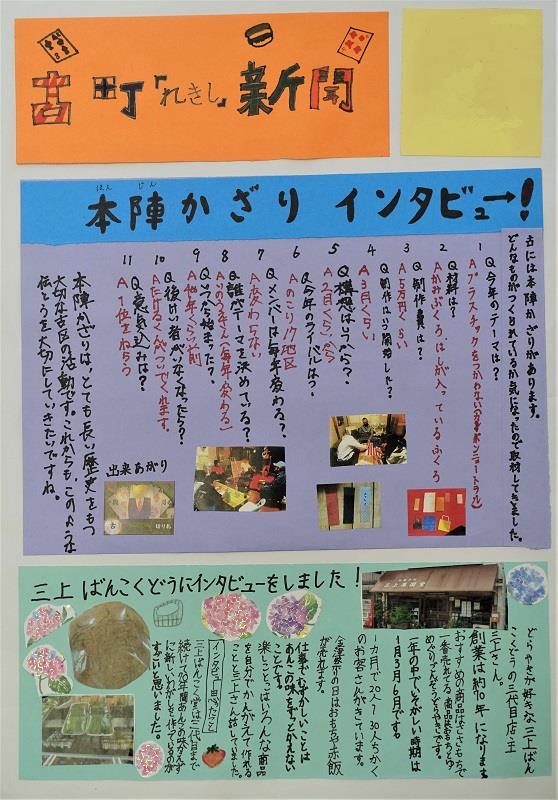 古町「れきし」新聞
本陣かざり インタビュー!
ほん じん
古には本陣かざりがあります。
どんなものがつくられているか気になったので取材してきました。
1 Q今年のテーマは?
Aプラスチックをつかわない(カーボンニュートラル)
2 Q材料は?
Aかみぶくろ はしが入っているふくろ
3 Q制作費は?
A5万円くらい
4 Q制作はいつ開始した?
A3月くらい
5 Q構想はいつから?
A2月くらいから
6 Q今年のライバルは?
Aのこり17地区
7 Qメンバーは毎年変わる?
A変わらない
8 Q誰がテーマを決めている?
(毎年変わる)
9 Qいつから始まった?
A40年くらい前
10 Q後けい者がいなくなったら?
11 Q意気込みは?
A1位をねらう
本陣かざりは、とても長い歴史をもつ
大切な古区の活動です。これからも、このような
伝とうを大切にしていきたいですね。
出来あがり
古
切り札
三上 ばんこくどうにインタビューをしました!
どらやきが好きな三上ばん
こくどうの三代目店主
三上さん。
創業は約70年になります
おすすめの商品はささもちで
一番売れてる商品は
一年の中でいそがしい時期は
1月3月6月です。
一カ月で20人〜30人ちかく
のお客さんがきています。
が売れます。
仕事でむずかしいことは
あんこの味をかえないこと
楽しいことはいろんな商品
を自分でかんがえて作れる
ことと三上さんは話していました。
インタビュー中心に思ったこと
三上ばんこく堂は三代目まで
続けて70年間あんこの味をかえず
に新しいわがしを作っているのが
すごいと思いました。